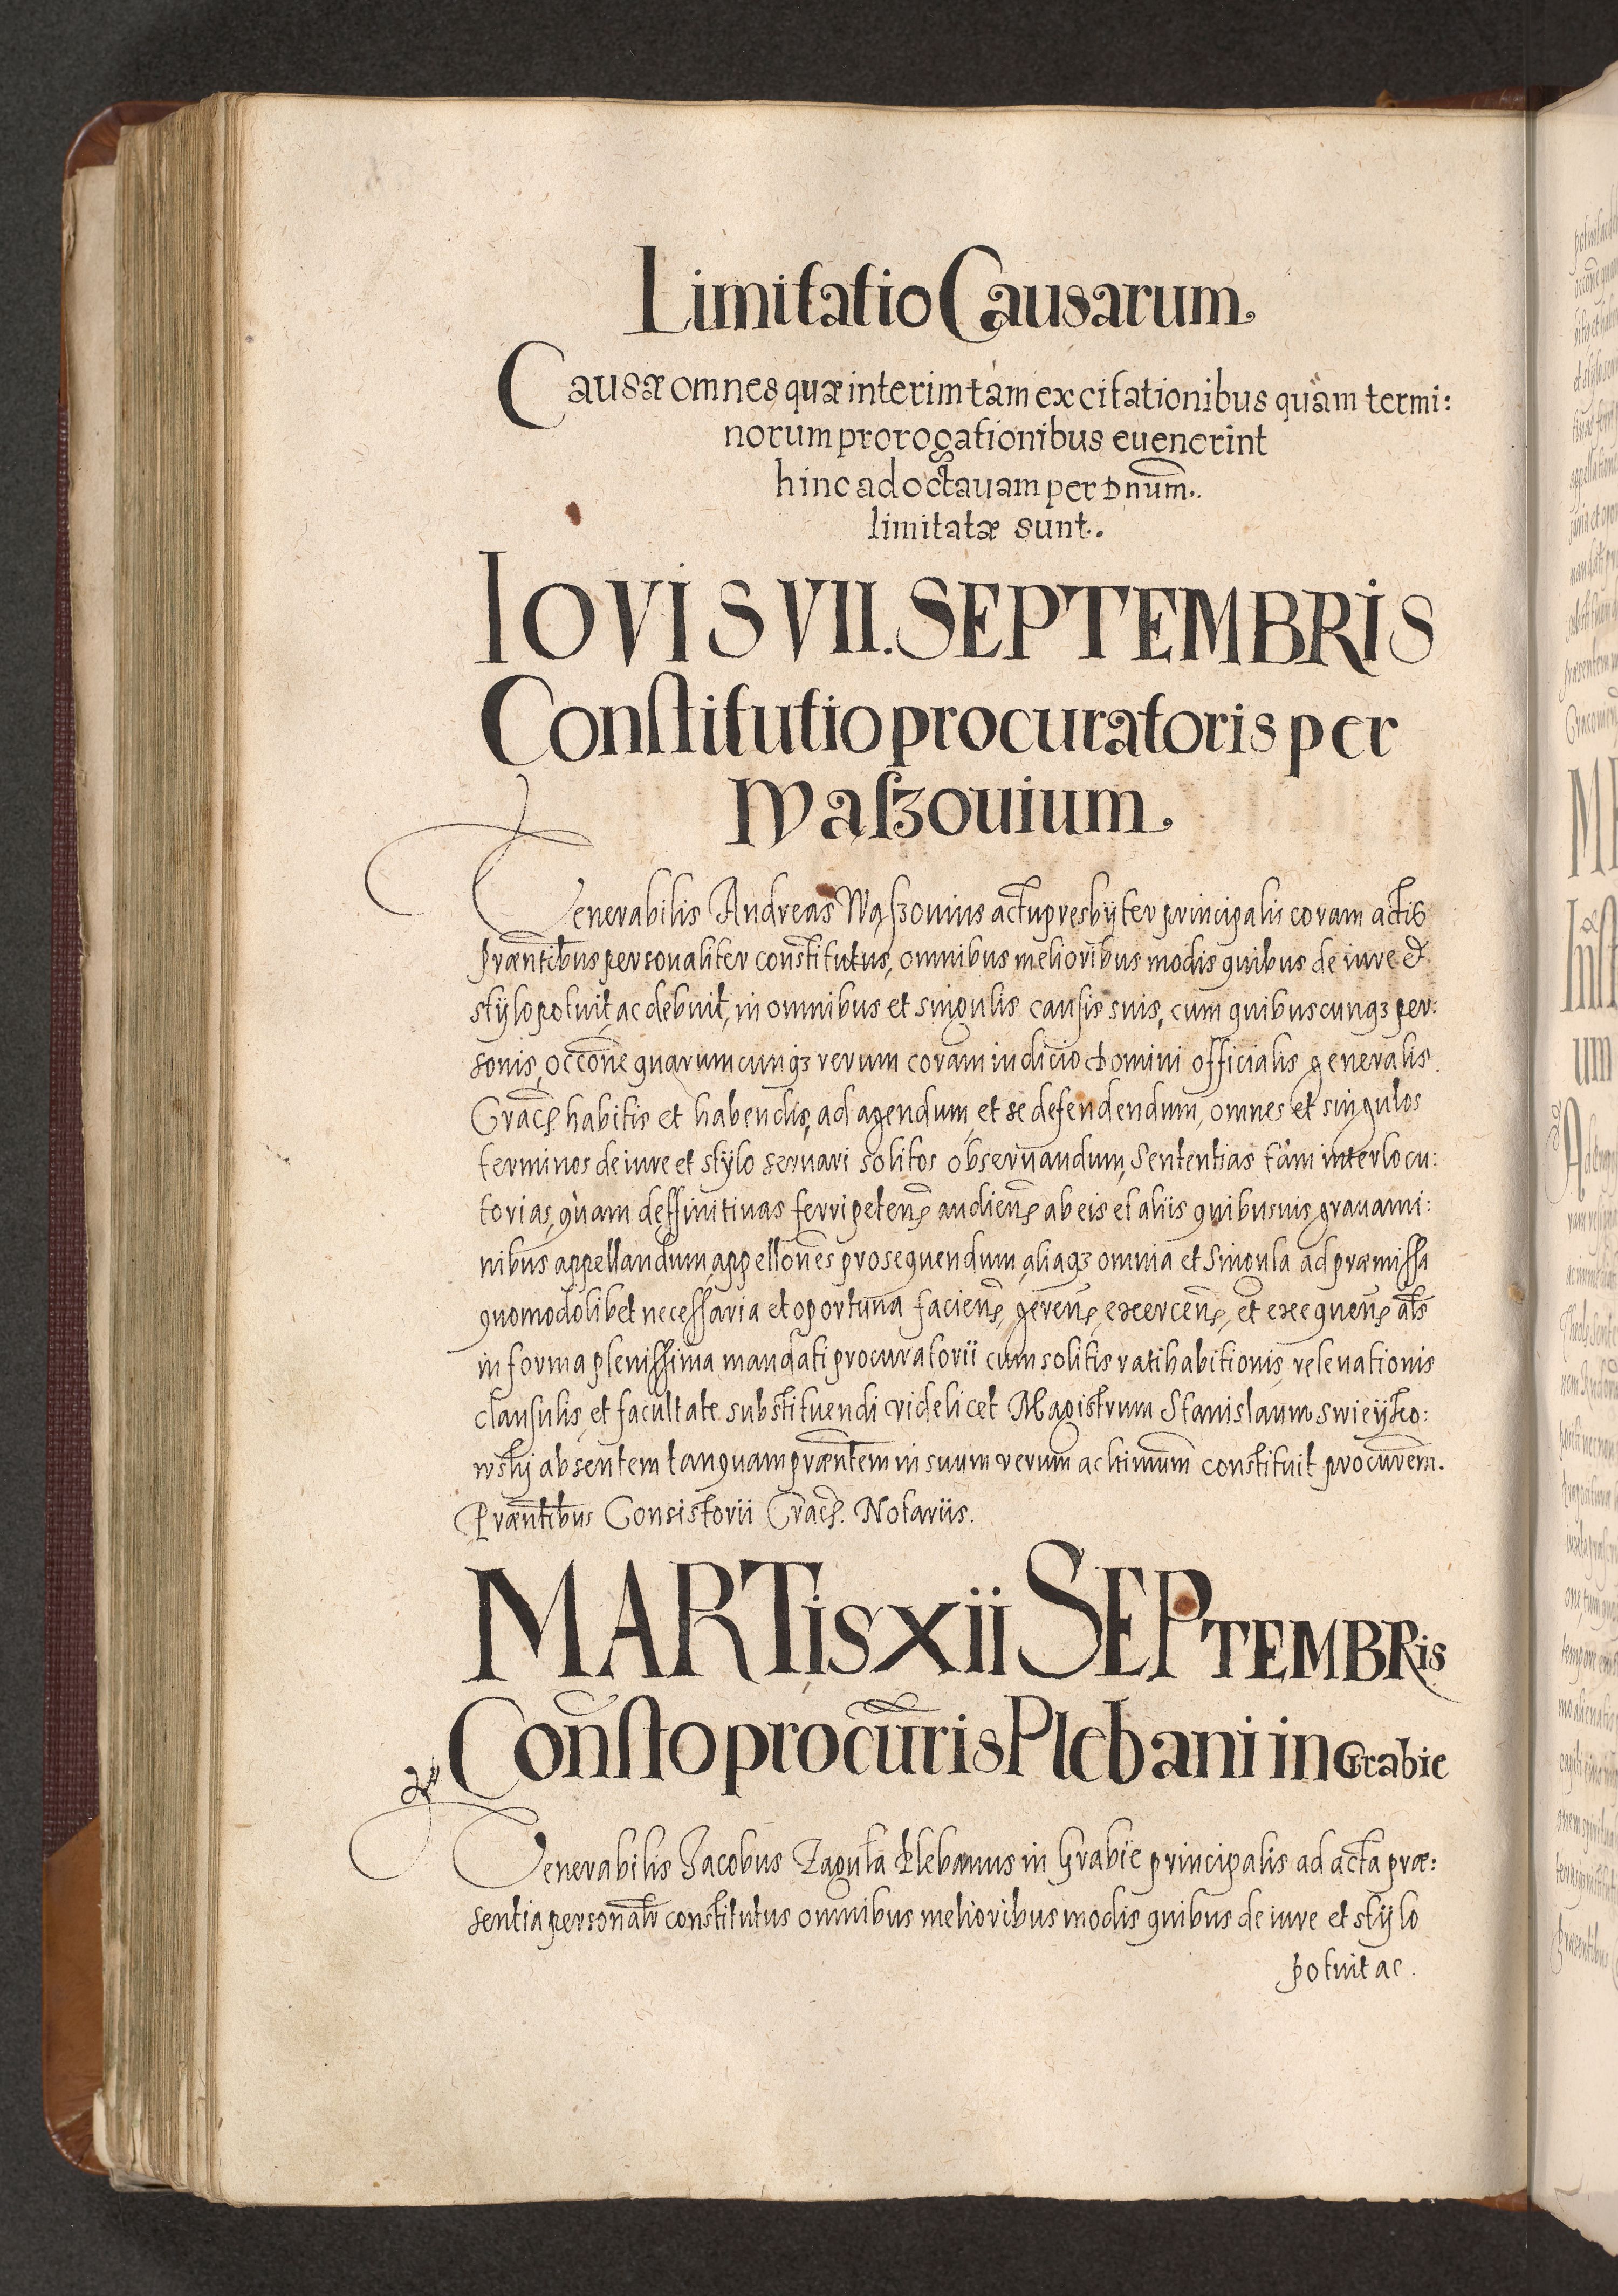 Limitatio Causarum
Causæ omnes quæ interim tàm ex citationibus quàm termi:
norum prorogationibus euenerint
hinc ad octauam per Dnum̅.
limitatæ sunt.
IOVIS VII. SEPTEMBRIS
Constitutio procuratoris per
Waſzouium
Venerabilis Andreas Waſzouius actu presbÿter principalis coram actis
præntibus personaliter constitutus, omnibus melioribus modis quibus de iure et
stÿlo potuit ac debuit, in omnibus et singulis causis suis, cum quibuscunqȝ per:
sonis, occone quarumcunqȝ rerum coram iudicio Domini officialis generalis
Cracs. habitis et habendis, ad agendum, et se defendendum, omnes et singulos
terminos de iure et stÿlo seruari solitos obseruandum, Sententias tàm interlocu:
torias, quàm deffinitiuas ferri petens audiens ab eis et aliis quibusuis grauami:
nibus appellandum, appellones prosequendum, aliaqȝ omnia et singula ad præmissa
quomodolibet necessaria et oportuna faciens, gerens, exercens, et exequens als
in forma plenissima mandati procuratorii cum solitis ratihabitionis, releuationis
clausulis, et facultate substituendi videlicet Magistrum Stanislaum Swieÿko:
wskÿ absentem tanquam præntem in suum verum ac ltimum constituit procurem.
Præntibus Consistorii Cracs. Notariis.
MARTis xii SEPTEMBRis
Consto procuris Plebani in Grabie
Venerabilis Jacobus Zagula Plebanus in Grabie principalis ad acta præ:
sentia personalr constitutus omnibus melioribus modis quibus de iure et stÿlo
potuit ac